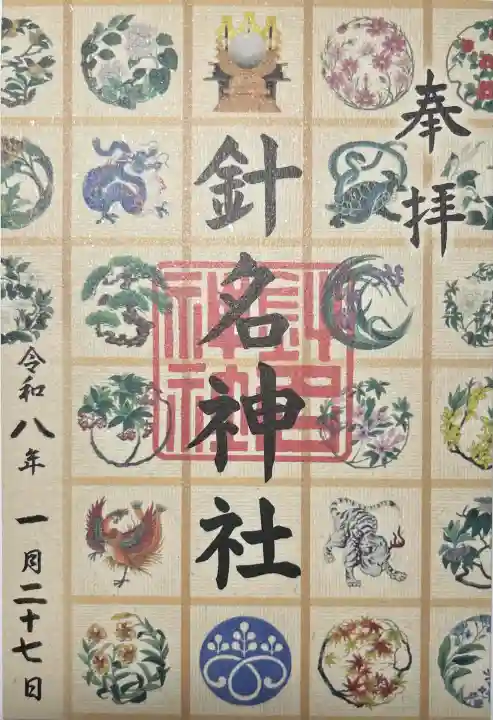 奉拝
針名神社
針名
神社
令和八年 一月二十七日